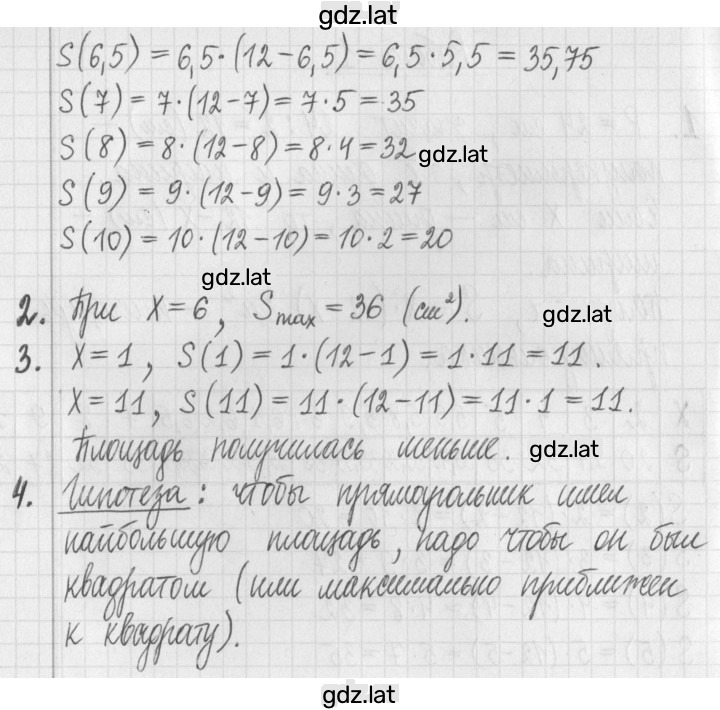 gdz.lat
S(6,5) = 6,5·(12-6,5) = 6,5·5,5 = 35,75
S(7) = 7·(12-7) = 7·5 = 35
S(8) = 8·(12-8) = 8·4 = 32
gdz.lat
S(9) = 9·(12-9) = 9·3 = 27
S(10) = 10·(12-10) = 10·2 = 20
gdz.lat
2. При X = 6, Smax = 36 (см²).
gdz.lat
3. X = 1, S(1) = 1·(12-1) = 1·11 = 11.
X = 11, S(11) = 11·(12-11) = 11·1 = 11.
Площадь получилась меньше.
gdz.lat
4. Гипотеза: чтобы прямоугольник имел
наибольшую площадь, надо чтобы он был
квадратом (или максимально приближен
к квадрату).
gdz.lat